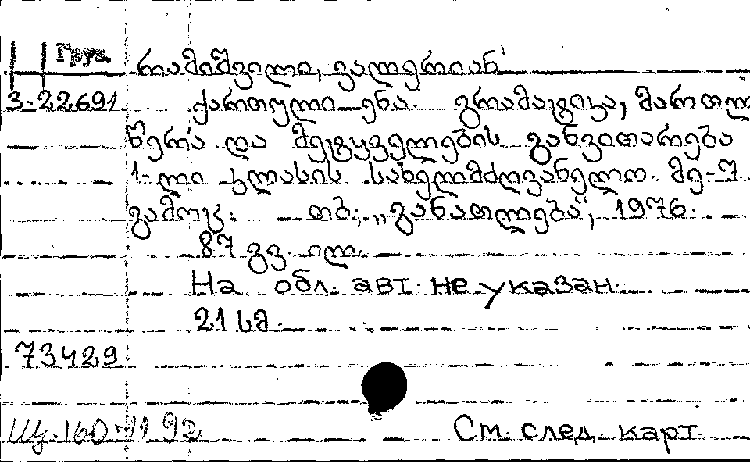 Груз.
რამიშვილი, ვალერიან
3-22691 ქართული ენა. გრამატიკა, მართლ
წერა და მეტყველების განვითარება
1-ლი კლასის სახელმძღვანელო. მე-7
გამოც. თბ., „განათლება", 1976.
87 გვ. ილ.
На обл. авт. не указан.
21 სმ.
73429
См. след. карт